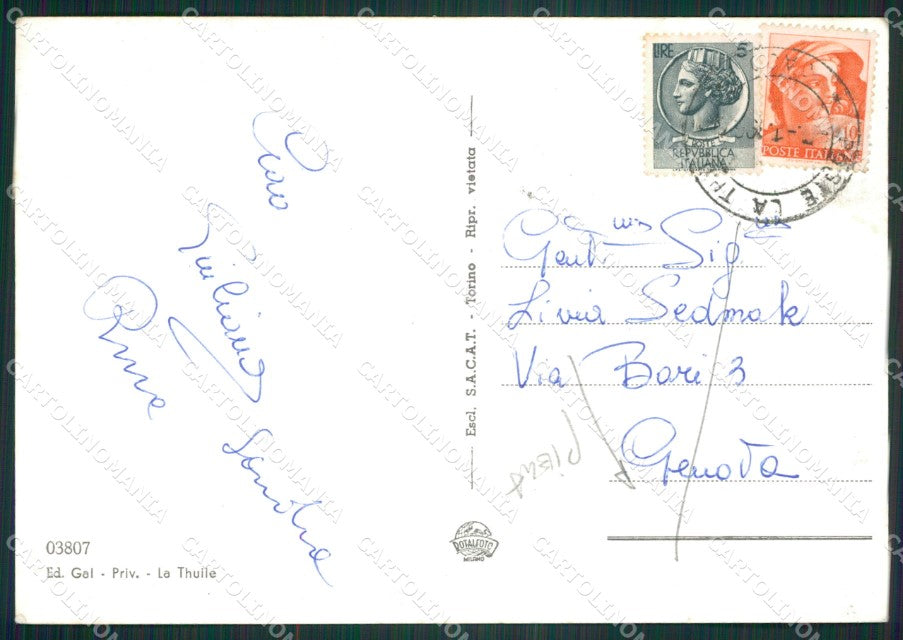 Ciao
Giuliana
Anna
Sandra
03807
Ed. Gal - Priv. - La Thuile
Escl. S.A.C.A.T. - Torino - Ripr. vietata
ROTALFOTO
MILANO
LIRE 5
POSTE
REPVBBLICA
ITALIANA
10
POSTE ITALIANE
LA TH
Gent.ma Sig.na
Livia Sedmak
Via Bari 3
Genova
CARTOLINOMANIA